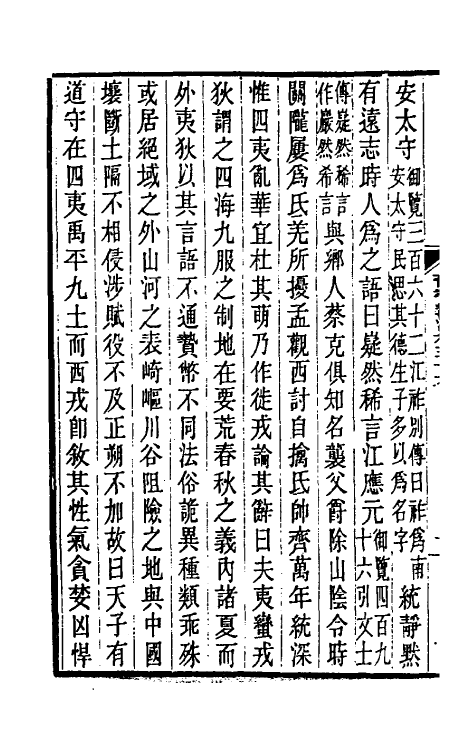 安太守御覽三百六十二江祚别傳曰祚爲南安太守民思其德生子多以爲名字統靜默
有遠志時人爲之語曰嶷然稀言江應元御覽四百九十六引文士
傳嶷然稀言作嚴然希言與鄉人蔡克俱知名襲父爵除山陰令時
關隴屢爲氐羌所擾孟觀西討自擒氐帥齊萬年統深
惟四夷亂華宜杜其萌乃作徙戎論其辭曰夫夷蠻戎
狄謂之四海九服之制地在要荒春秋之義內諸夏而
外夷狄以其言語不通贄幣不同法俗詭異種類乖殊
或居絕域之外山河之表崎嶇川谷阻險之地與中國
壤斷土隔不相侵涉賦役不及正朔不加故曰天子有
道守在四夷禹平九土而西戎卽敘其性氣貪婪凶悍